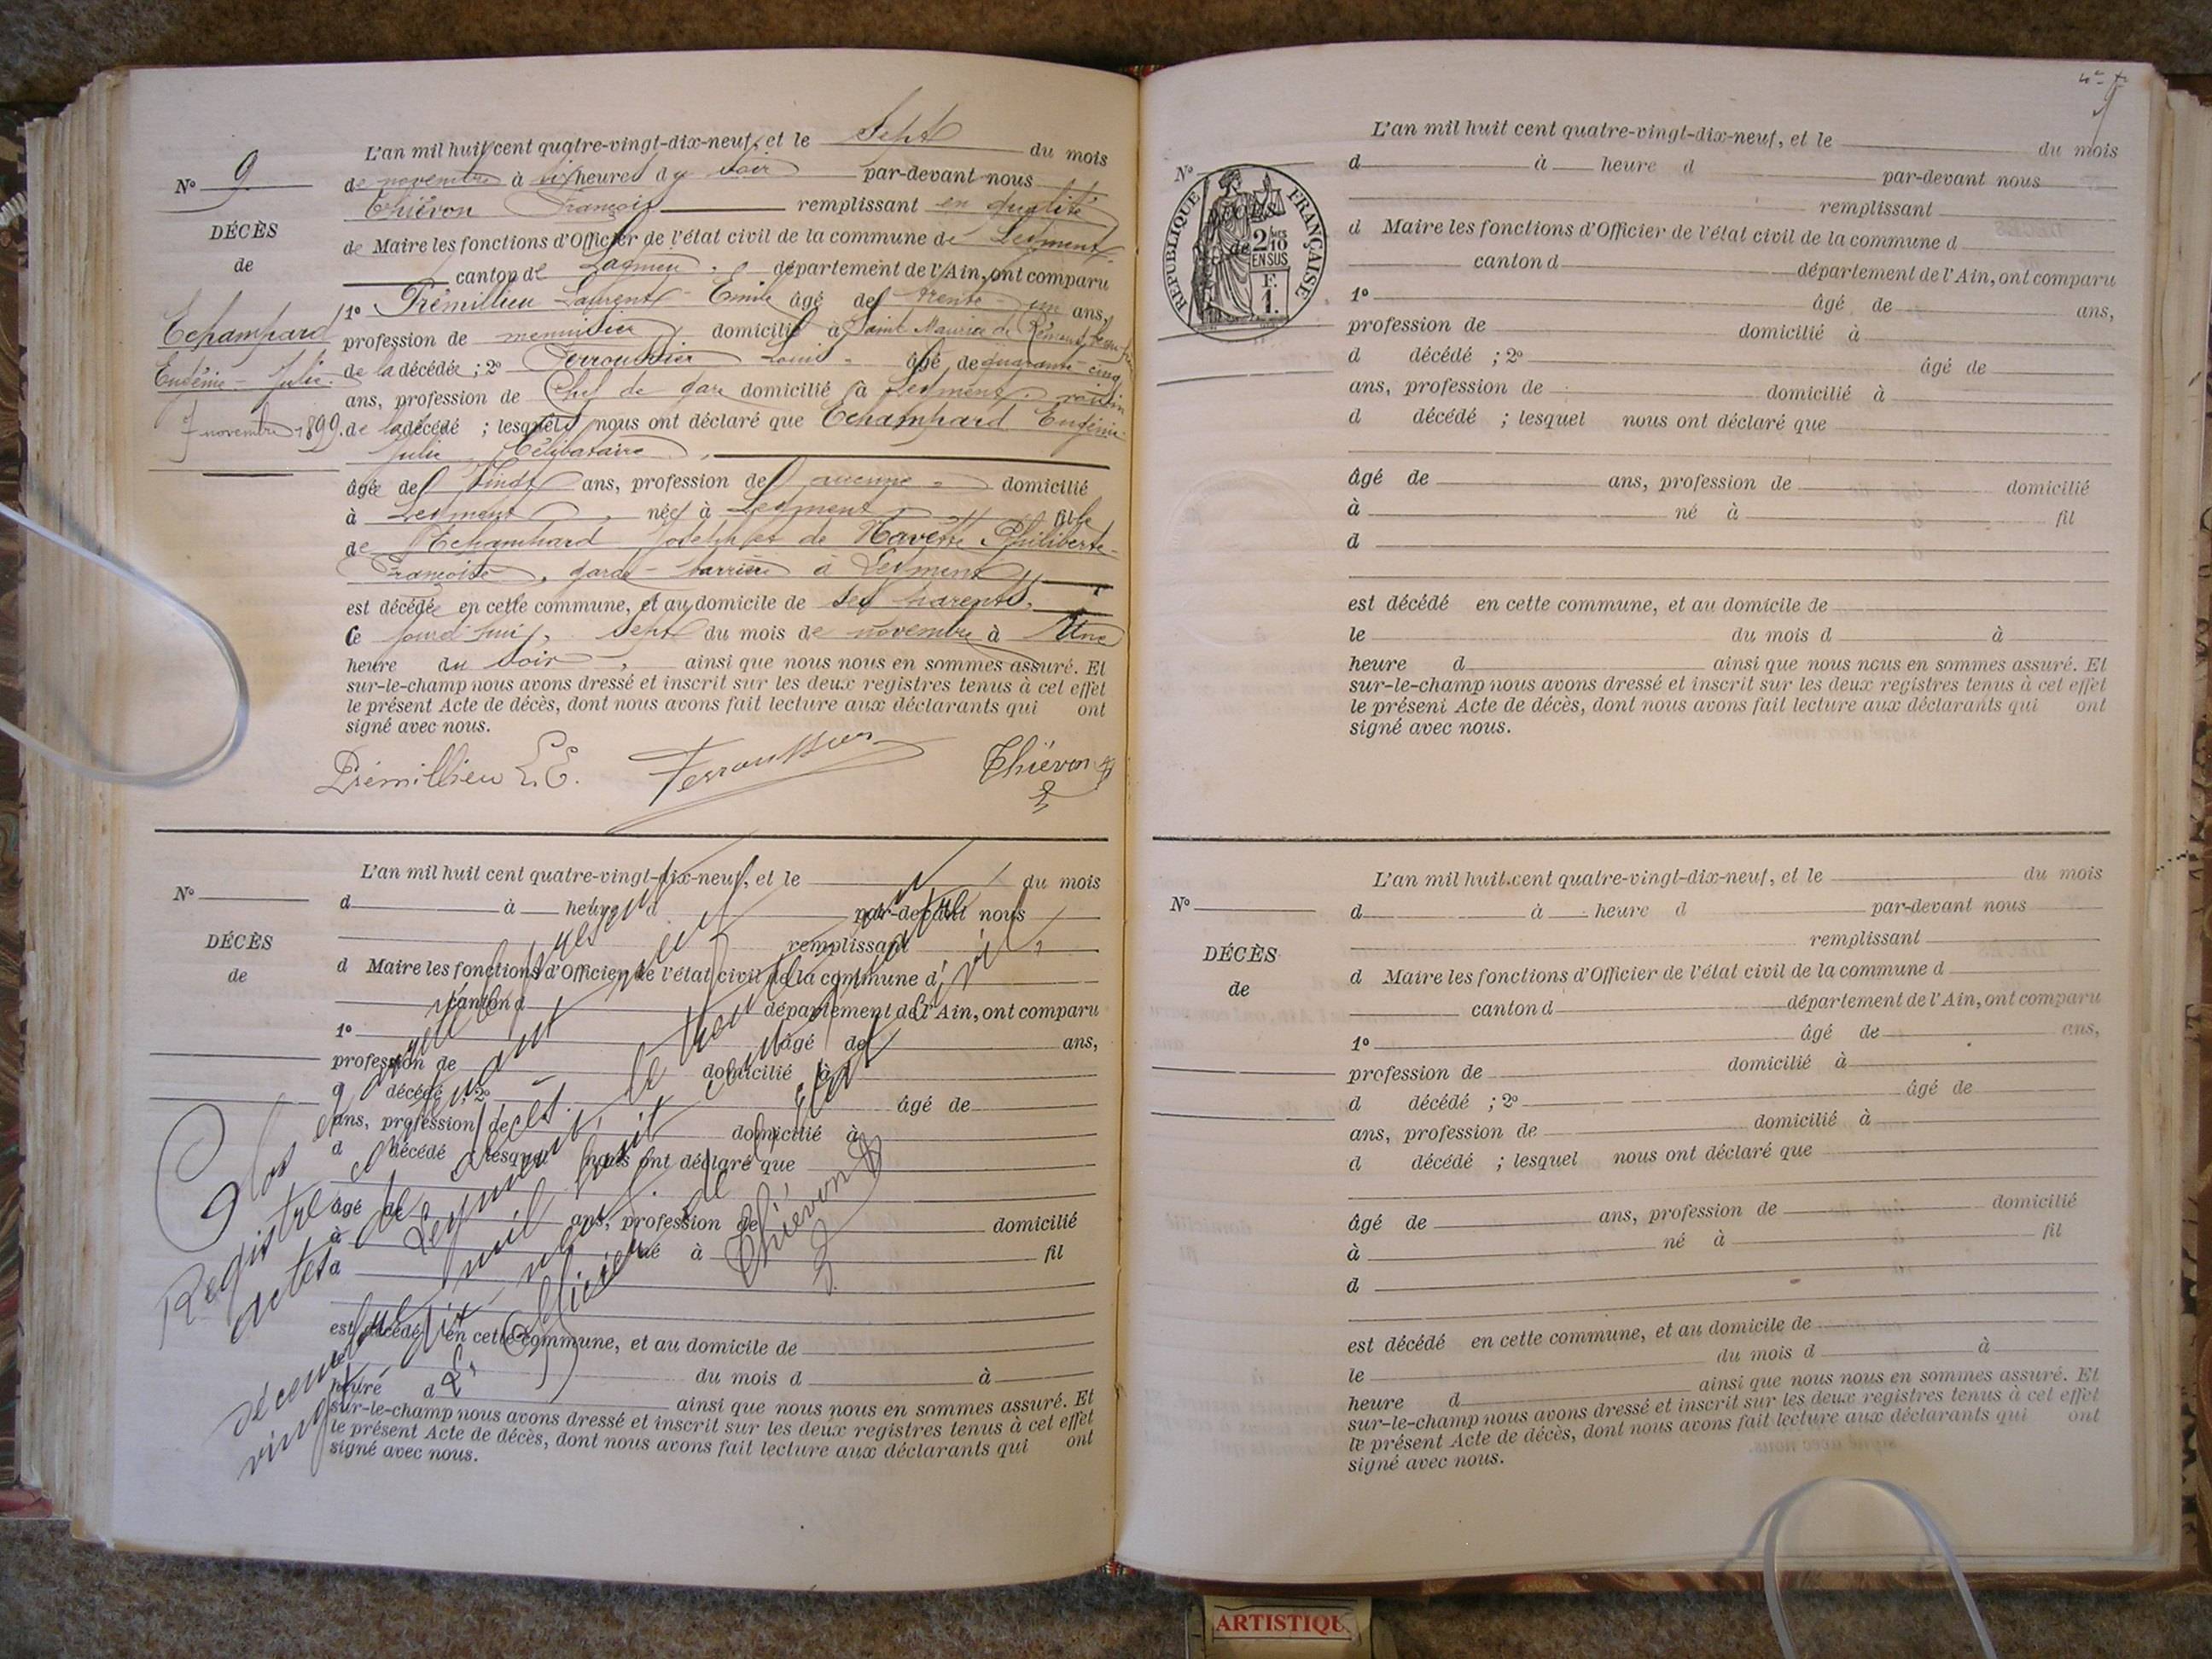 L'an mil huit cent quatre-vingt-dix-neuf, et le Sept du mois
N° 9
de novembre à six heures du soir par-devant nous
Thiévon François remplissant en qualité
DÉCÈS
de Maire les fonctions d'Officier de l'état civil de la commune de Leyment
de
canton de Lagnieu, département de l'Ain, ont comparu
1° Prémillieu Laurent-Emile âgé de trente-un ans,
Echampard
profession de menuisier domicilié à Saint Maurice de Rémens
Eugénie-Julie.
de la décédée ; 2° Perroussier Louis âgé de quarante-cinq
ans, profession de Chef de gare domicilié à Leyment, voisin
7 novembre 1899.
de la décédé ; lesquels nous ont déclaré que Echampard Eugénie
Julie, Célibataire,
âgée de Vingt ans, profession de aucune domicilié
à Leyment, née à Leyment, fille
de Echampard Joseph et de Navette Philiberte-
Françoise, garde-barrière à Leyment
est décédée en cette commune, et au domicile de ses parents,
ce jourd'hui, Sept du mois de novembre à Une
heure du soir, ainsi que nous nous en sommes assuré. Et
sur-le-champ nous avons dressé et inscrit sur les deux registres tenus à cet effet
le présent Acte de décès, dont nous avons fait lecture aux déclarants qui ont
signé avec nous.
Prémillieu L.E. Perroussier Thiévon
L'an mil huit cent quatre-vingt-dix-neuf, et le du mois
N°
d à heure d par-devant nous
remplissant
DÉCÈS
d Maire les fonctions d'Officier de l'état civil de la commune d
de
canton d département de l'Ain, ont comparu
1° âgé de ans,
profession de domicilié à
d décédé ; 2° âgé de
ans, profession de domicilié à
d décédé ; lesquel nous ont déclaré que
âgé de ans, profession de domicilié
à né à fil
d
est décédé en cette commune, et au domicile de
le du mois d à
heure d ainsi que nous nous en sommes assuré. Et
sur-le-champ nous avons dressé et inscrit sur les deux registres tenus à cet effet
le présent Acte de décès, dont nous avons fait lecture aux déclarants qui ont
signé avec nous.
Clos et arrêté le présent
Registre contenant neuf
actes de décès.
Leyment, le trente un
décembre mil huit cent quatre
vingt-dix-neuf.
L'Officier de l'état civil,
Thiévon
L'an mil huit cent quatre-vingt-dix-neuf, et le du mois
N°
d à heure d par-devant nous
remplissant
DÉCÈS
de
RÉPUBLIQUE FRANÇAISE
2/10 EN SUS
F. 1.
d Maire les fonctions d'Officier de l'état civil de la commune d
canton d département de l'Ain, ont comparu
1° âgé de ans,
profession de domicilié à
d décédé ; 2° âgé de
ans, profession de domicilié à
d décédé ; lesquel nous ont déclaré que
âgé de ans, profession de domicilié
à né à fil
d
est décédé en cette commune, et au domicile de
le du mois d à
heure d ainsi que nous nous en sommes assuré. Et
sur-le-champ nous avons dressé et inscrit sur les deux registres tenus à cet effet
le présent Acte de décès, dont nous avons fait lecture aux déclarants qui ont
signé avec nous.
L'an mil huit cent quatre-vingt-dix-neuf, et le du mois
N°
d à heure d par-devant nous
remplissant
DÉCÈS
d Maire les fonctions d'Officier de l'état civil de la commune d
de
canton d département de l'Ain, ont comparu
1° âgé de ans,
profession de domicilié à
d décédé ; 2° âgé de
ans, profession de domicilié à
d décédé ; lesquel nous ont déclaré que
âgé de ans, profession de domicilié
à né à fil
d
est décédé en cette commune, et au domicile de
le du mois d à
heure d ainsi que nous nous en sommes assuré. Et
sur-le-champ nous avons dressé et inscrit sur les deux registres tenus à cet effet
le présent Acte de décès, dont nous avons fait lecture aux déclarants qui ont
signé avec nous.
ARTISTIQU